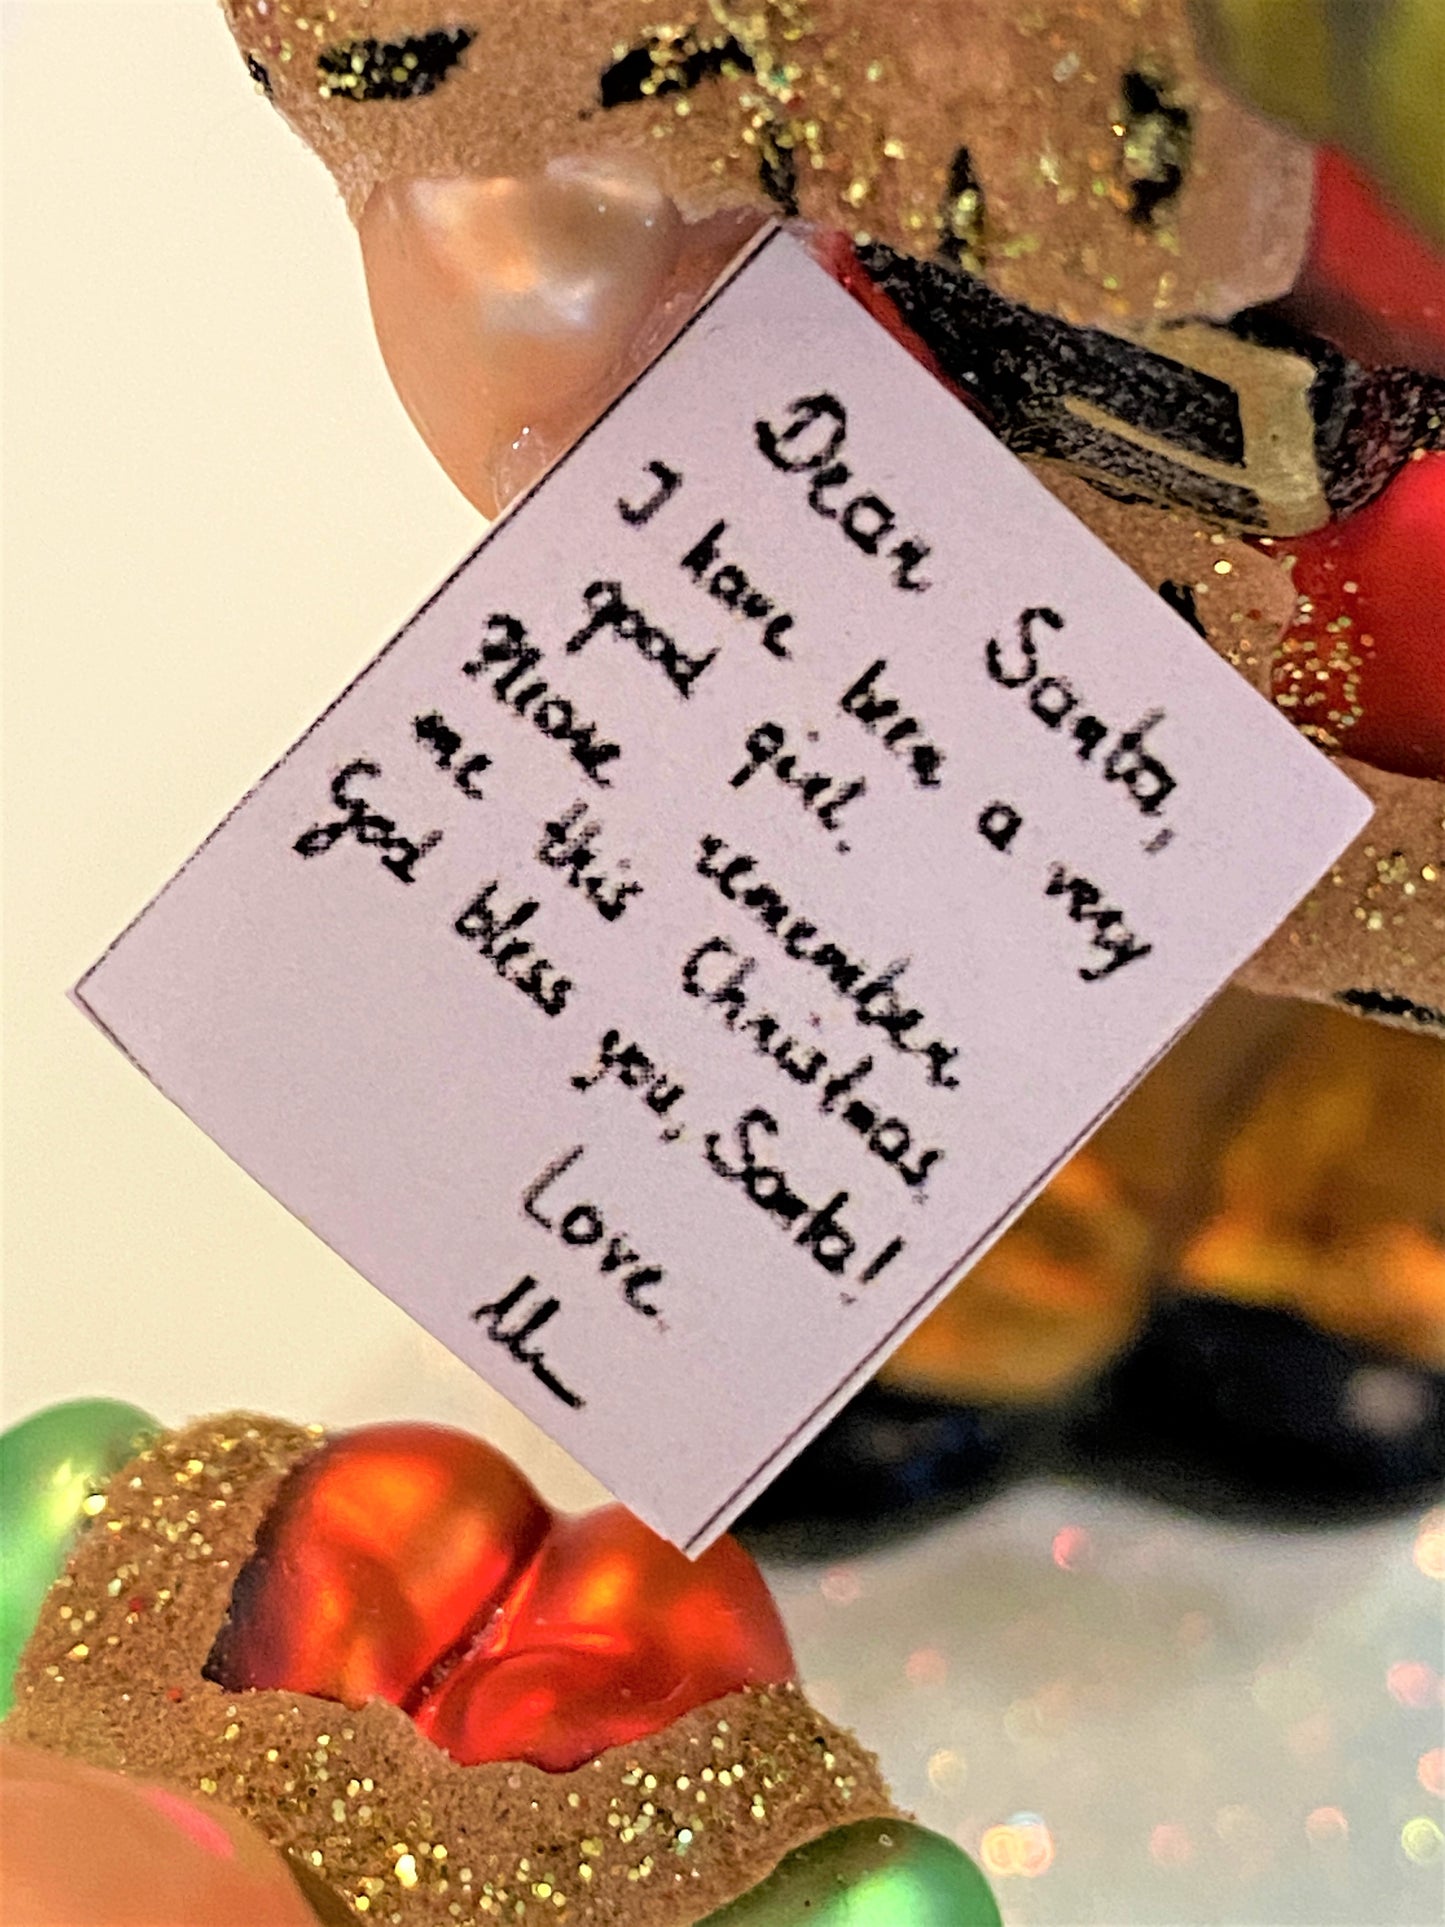 Dear Santa,
I have been a very
good girl.
Please remember
me this Christmas.
God bless you, Santa!
Love,